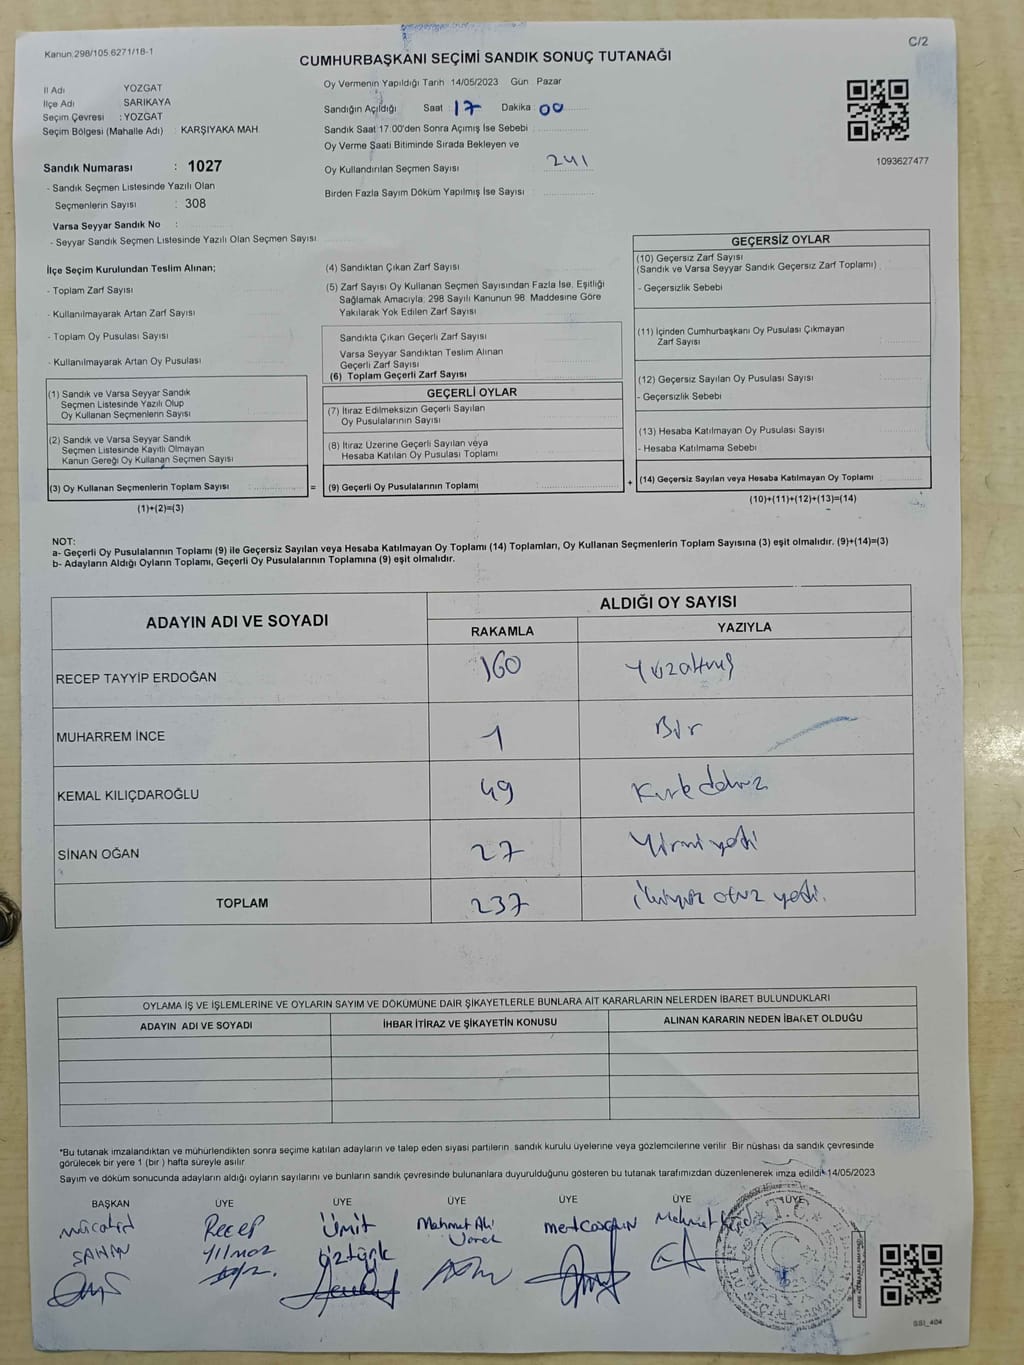 Kanun.298/105.6271/18-1
C/2
CUMHURBAŞKANI SEÇİMİ SANDIK SONUÇ TUTANAĞI
İl Adı YOZGAT
İlçe Adı SARIKAYA
Seçim Çevresi : YOZGAT
Seçim Bölgesi (Mahalle Adı) : KARŞIYAKA MAH.
Sandık Numarası : 1027
- Sandık Seçmen Listesinde Yazılı Olan
Seçmenlerin Sayısı : 308
Varsa Seyyar Sandık No :
- Seyyar Sandık Seçmen Listesinde Yazılı Olan Seçmen Sayısı
Oy Vermenin Yapıldığı Tarih 14/05/2023 Gün Pazar
Sandığın Açıldığı Saat 17 Dakika 00
Sandık Saat 17:00'den Sonra Açımış İse Sebebi
Oy Verme Saati Bitiminde Sırada Bekleyen ve
Oy Kullandırılan Seçmen Sayısı 241
Birden Fazla Sayım Döküm Yapılmış İse Sayısı
1093627477
İlçe Seçim Kurulundan Teslim Alınan;
- Toplam Zarf Sayısı
- Kullanılmayarak Artan Zarf Sayısı
- Toplam Oy Pusulası Sayısı
- Kullanılmayarak Artan Oy Pusulası
(1) Sandık ve Varsa Seyyar Sandık
Seçmen Listesinde Yazılı Olup
Oy Kullanan Seçmenlerin Sayısı
(2) Sandık ve Varsa Seyyar Sandık
Seçmen Listesinde Kayıtlı Olmayan
Kanun Gereği Oy Kullanan Seçmen Sayısı
(3) Oy Kullanan Seçmenlerin Toplam Sayısı
(1)+(2)=(3)
(4) Sandıktan Çıkan Zarf Sayısı
(5) Zarf Sayısı Oy Kullanan Seçmen Sayısından Fazla İse, Eşitliği
Sağlamak Amacıyla, 298 Sayılı Kanunun 98. Maddesine Göre
Yakılarak Yok Edilen Zarf Sayısı
Sandıkta Çıkan Geçerli Zarf Sayısı
Varsa Seyyar Sandıktan Teslim Alınan
Geçerli Zarf Sayısı
(6) Toplam Geçerli Zarf Sayısı
GEÇERLİ OYLAR
(7) İtiraz Edilmeksizin Geçerli Sayılan
Oy Pusulalarının Sayısı
(8) İtiraz Üzerine Geçerli Sayılan veya
Hesaba Katılan Oy Pusulası Toplamı
= (9) Geçerli Oy Pusulalarının Toplamı
GEÇERSİZ OYLAR
(10) Geçersiz Zarf Sayısı
(Sandık ve Varsa Seyyar Sandık Geçersiz Zarf Toplamı)
- Geçersizlik Sebebi
(11) İçinden Cumhurbaşkanı Oy Pusulası Çıkmayan
Zarf Sayısı
(12) Geçersiz Sayılan Oy Pusulası Sayısı
- Geçersizlik Sebebi
(13) Hesaba Katılmayan Oy Pusulası Sayısı
- Hesaba Katılmama Sebebi
+ (14) Geçersiz Sayılan veya Hesaba Katılmayan Oy Toplamı
(10)+(11)+(12)+(13)=(14)
NOT:
a- Geçerli Oy Pusulalarının Toplamı (9) ile Geçersiz Sayılan veya Hesaba Katılmayan Oy Toplamı (14) Toplamları, Oy Kullanan Seçmenlerin Toplam Sayısına (3) eşit olmalıdır. (9)+(14)=(3)
b- Adayların Aldığı Oyların Toplamı, Geçerli Oy Pusulalarının Toplamına (9) eşit olmalıdır.
ADAYIN ADI VE SOYADI
ALDIĞI OY SAYISI
RAKAMLA YAZIYLA
RECEP TAYYİP ERDOĞAN 160 Yüzaltmış
MUHARREM İNCE 1 Bir
KEMAL KILIÇDAROĞLU 49 Kırk dokuz
SİNAN OĞAN 27 Yirmi yedi
TOPLAM 237 ikiyüz otuz yedi.
OYLAMA İŞ VE İŞLEMLERİNE VE OYLARIN SAYIM VE DÖKÜMÜNE DAİR ŞİKAYETLERLE BUNLARA AİT KARARLARIN NELERDEN İBARET BULUNDUKLARI
ADAYIN ADI VE SOYADI İHBAR İTİRAZ VE ŞİKAYETİN KONUSU ALINAN KARARIN NEDEN İBARET OLDUĞU
*Bu tutanak imzalandıktan ve mühürlendikten sonra seçime katılan adayların ve talep eden siyasi partilerin sandık kurulu üyelerine veya gözlemcilerine verilir. Bir nüshası da sandık çevresinde
görülecek bir yere 1 (bir ) hafta süreyle asılır.
Sayım ve döküm sonucunda adayların aldığı oyların sayılarını ve bunların sandık çevresinde bulunanlara duyurulduğunu gösteren bu tutanak tarafımızdan düzenlenerek imza edildi. 14/05/2023
BAŞKAN ÜYE ÜYE ÜYE ÜYE ÜYE ÜYE
Mücahit Recep Ümit Mahmut Ali mert Mehmet
ŞAHİN YILMAZ Öztürk
T.C.
GSI_404